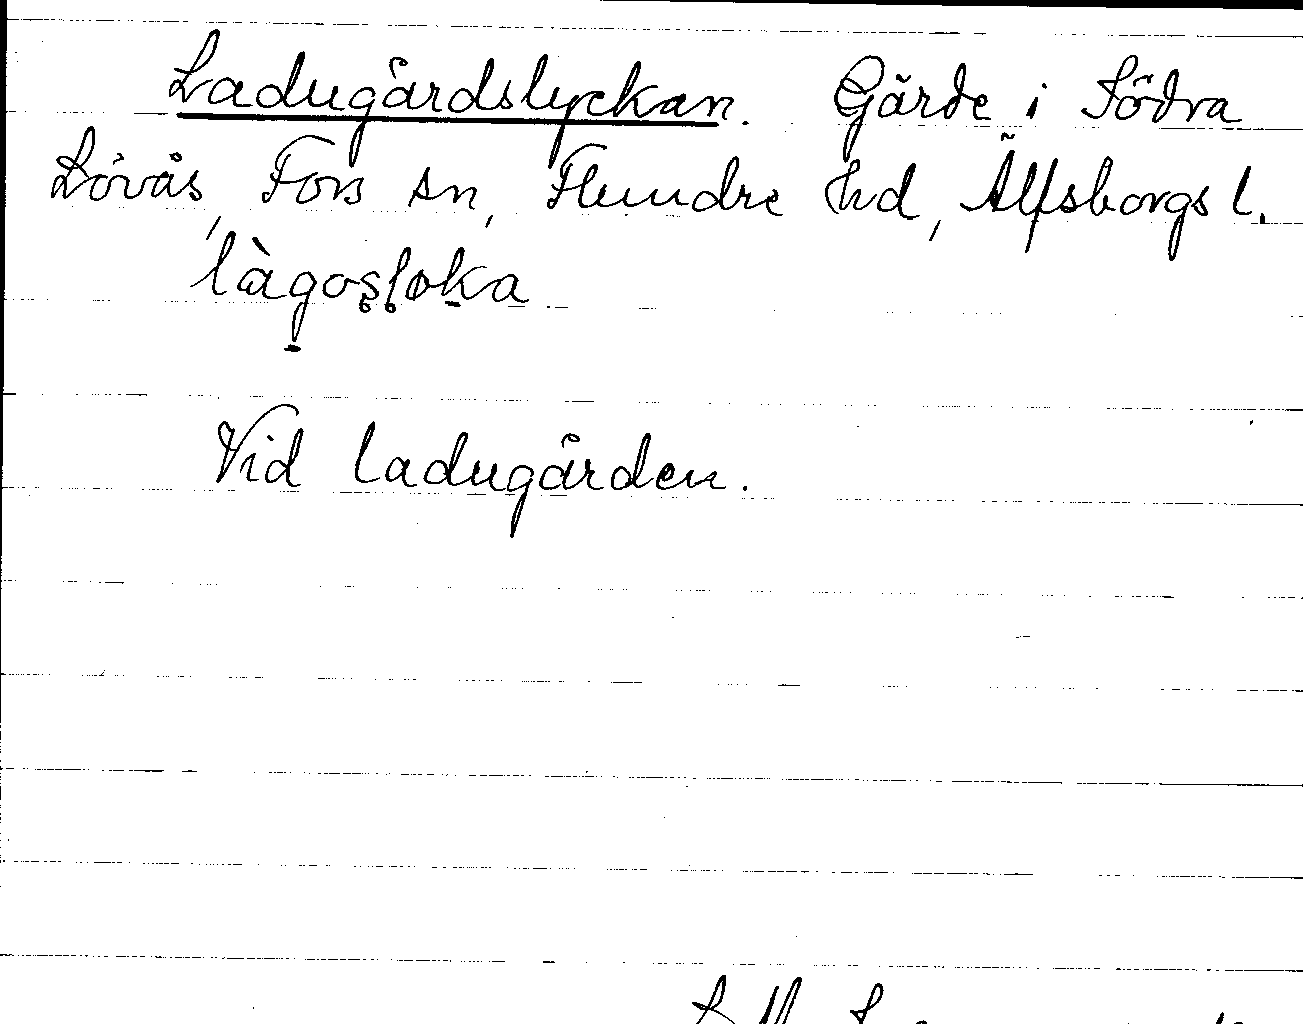 Ladugårdslyckan. Gärde i Södra
Lövås, Fors sn, Flundre hd, Älfsborgs l.
làgosloka
Vid ladugården.